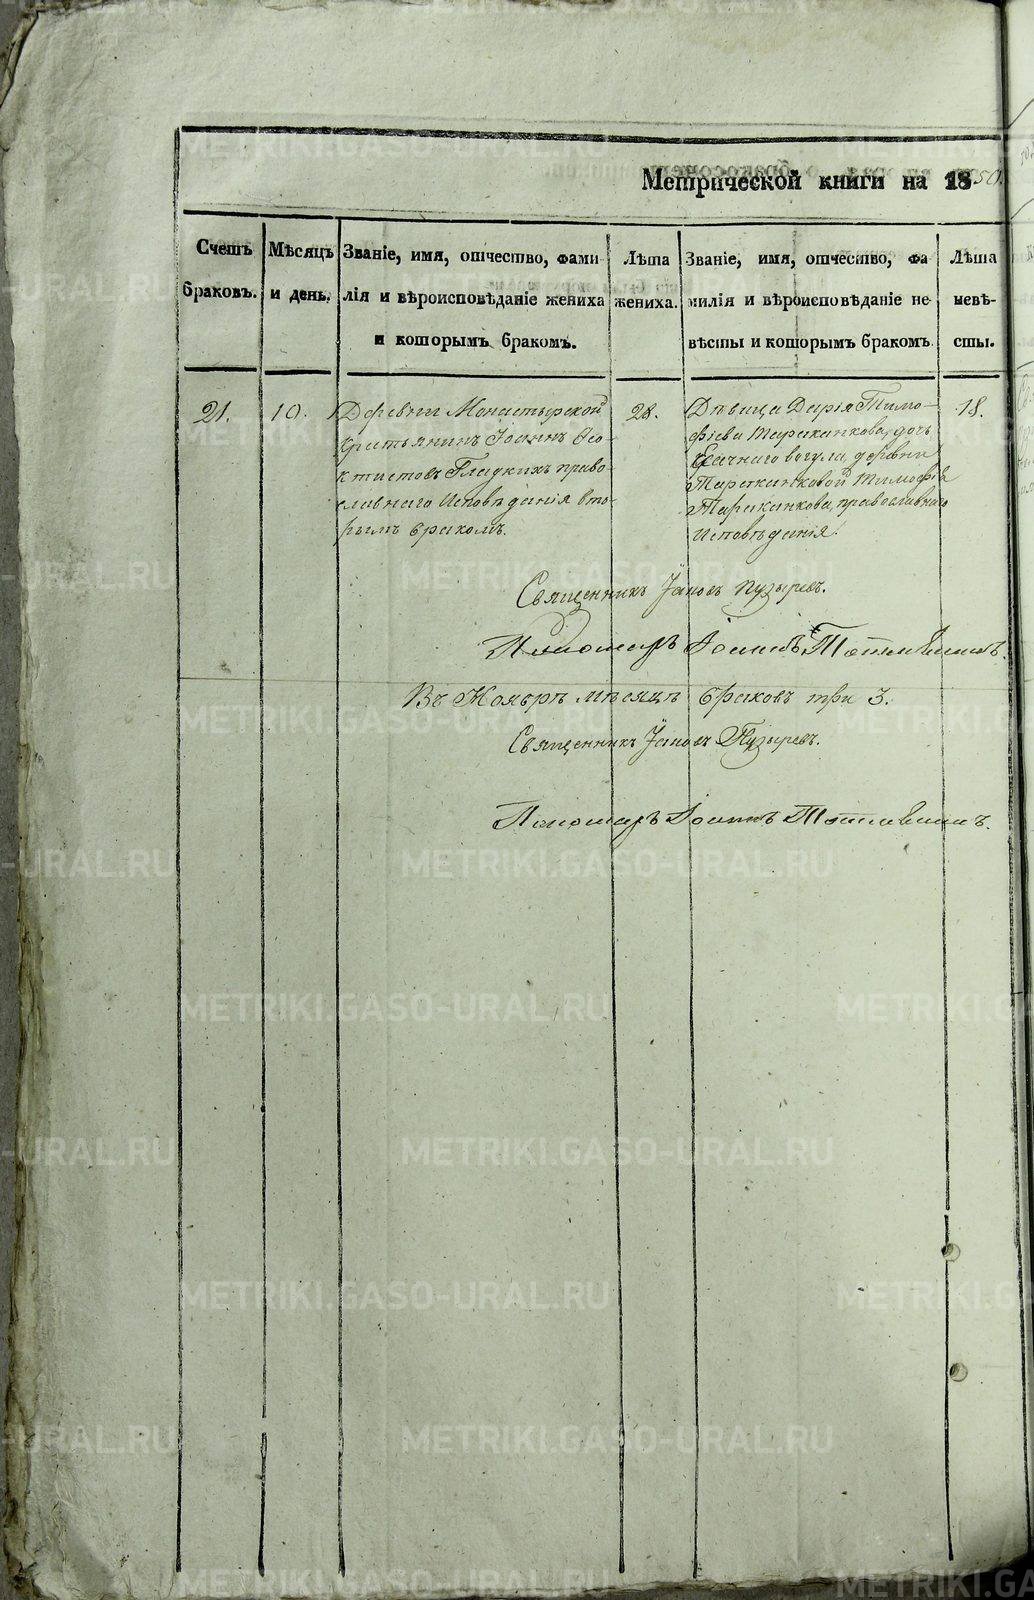 Метрической книги на 1850.
Счетъ браковъ.
Мѣсяцъ и день.
Званіе, имя, отчество, фами
лія и вѣроисповѣданіе жениха
и которымъ бракомъ.
Лѣта
жениха.
Званіе, имя, отчество, фа
милія и вѣроисповѣданіе не
вѣсты и которымъ бракомъ
Лѣта
невѣ-
сты.
21.
10.
Деревни Монастырской
крестьянинъ Іоаннъ Ѳео
ктистовъ Гладкихъ право
славнаго исповѣданія вто-
рымъ бракомъ.
28.
Дѣвица Дарія Тимо-
феева Тараканкова, дочь
Ясачнаго вогула, деревни
Тараканковой Тимофѣя
Тараканкова, православнаго
исповѣданія.
18.
Священникъ Іаковъ Пузыревъ.
Пономарь Іоаннъ
Въ Ноябрѣ мѣсяцѣ браковъ три 3.
Священникъ Іаковъ Пузыревъ.
Пономарь Іоаннъ
METRIKI.GASO-URAL.RU